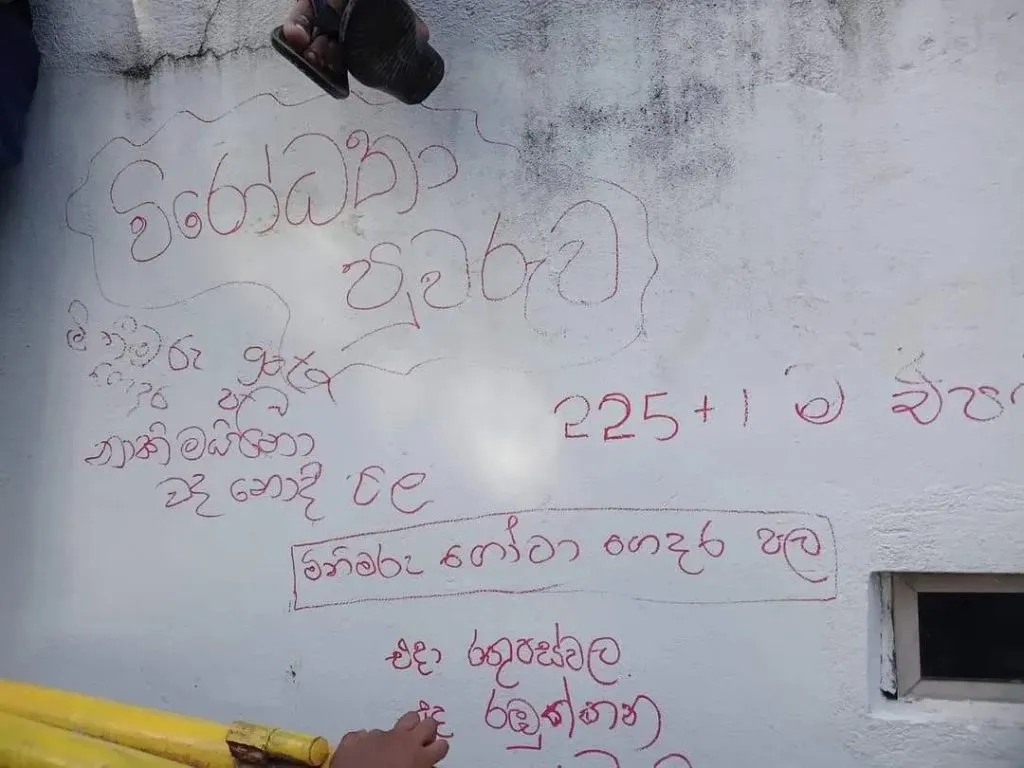 විරෝධතා
පුවරුව
මිනීමරු
පල
නාකි මයිනෝ
වද නොදී පල
225+1 ම එපා
මිනීමරු ගෝටා ගෙදර පල
එදා රතුපස්වල
අද රඹුක්කන